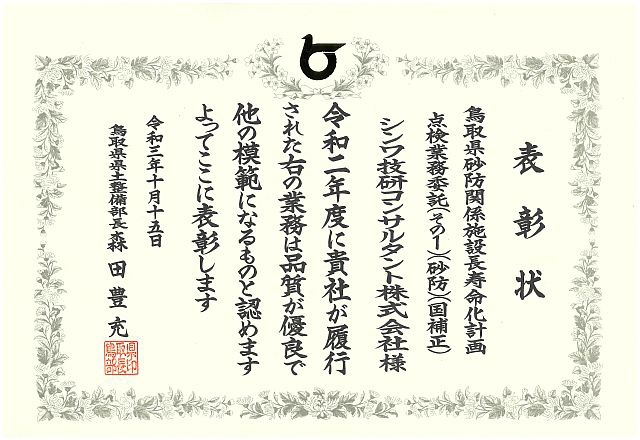 表彰状
鳥取県砂防関係施設長寿命化計画
点検業務委託(その1)(砂防)(国補正)
シンワ技研コンサルタント株式会社様
令和二年度に貴社が履行
された右の業務は品質が優良で
他の模範になるものと認めます
よってここに表彰します
令和三年十月十五日
鳥取県県土整備部長森田豊充